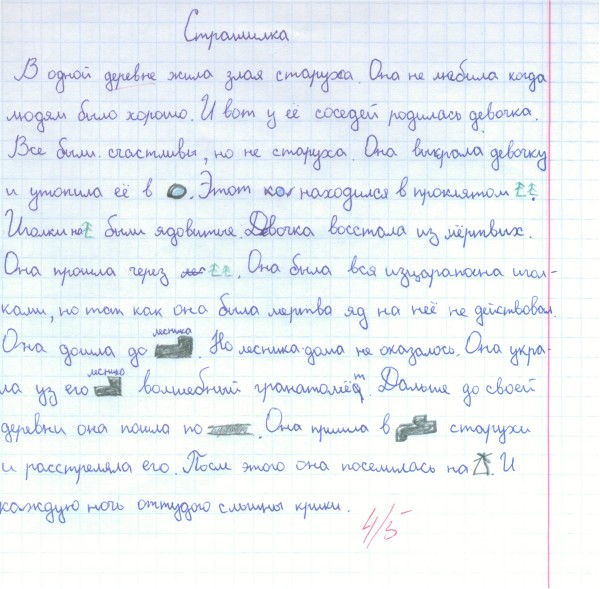 Страшилка
В одной деревне жила злая старуха. Она не любила когда
людям было хорошо. И вот у её соседей родилась девочка.
Все были счастливы, но не старуха. Она выкрала девочку
и утопила её в . Этот находился в проклятом .
Иголки на были ядовитые. Девочка восстала из мёртвых.
Она прошла через . Она была вся изцарапана игол-
ками, но так как она была мертва яд на неё не действовал.
Она дошла до лесника . Но лесника дома не оказалось. Она укра-
ла из его волшебный гранатомёт. Дальше до своей
деревни она пошла по . Она пришла в старухи
и расстреляла его. После этого она поселилась на . И
каждую ночь оттудого слышны крики.
4/5